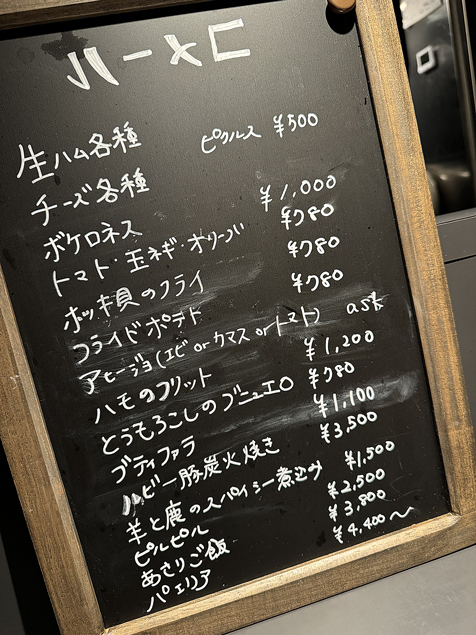 ハーメC
生ハム各種
ピクルス ¥500
チーズ各種
ボケロネス ¥1,000
トマト・玉ネギ・オリーブ ¥780
ホッキ貝のフライ ¥780
フライドポテト ¥780
アヒージョ(エビ or カマス or トマト) ask
ハモのフリット ¥1,200
とうもろこしのブニュエロ ¥780
ブティファラ ¥1,100
ルビー豚炭火焼き ¥3,500
羊と鹿のスパイシー煮込み ¥1,500
ピルピル ¥2,500
あさりご飯 ¥3,800
パエリア ¥4,400〜